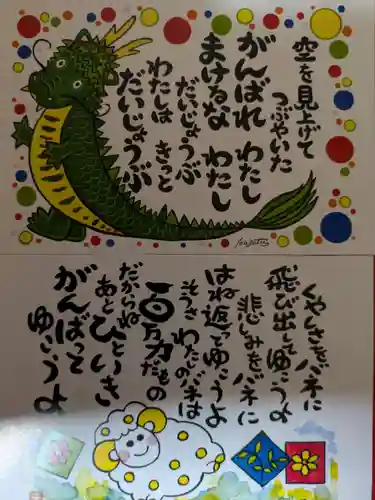 空を見上げて
つぶやいた
がんばれ わたし
まけるな わたし
だいじょうぶ
わたしは きっと
だいじょうぶ
くやしさをバネに
飛び出してゆこうよ
悲しみをバネに
はね返ってゆこうよ
そうさ わたしのバネは
百万力だもの
だからね
あと ひといき
がんばって
ゆこうよ